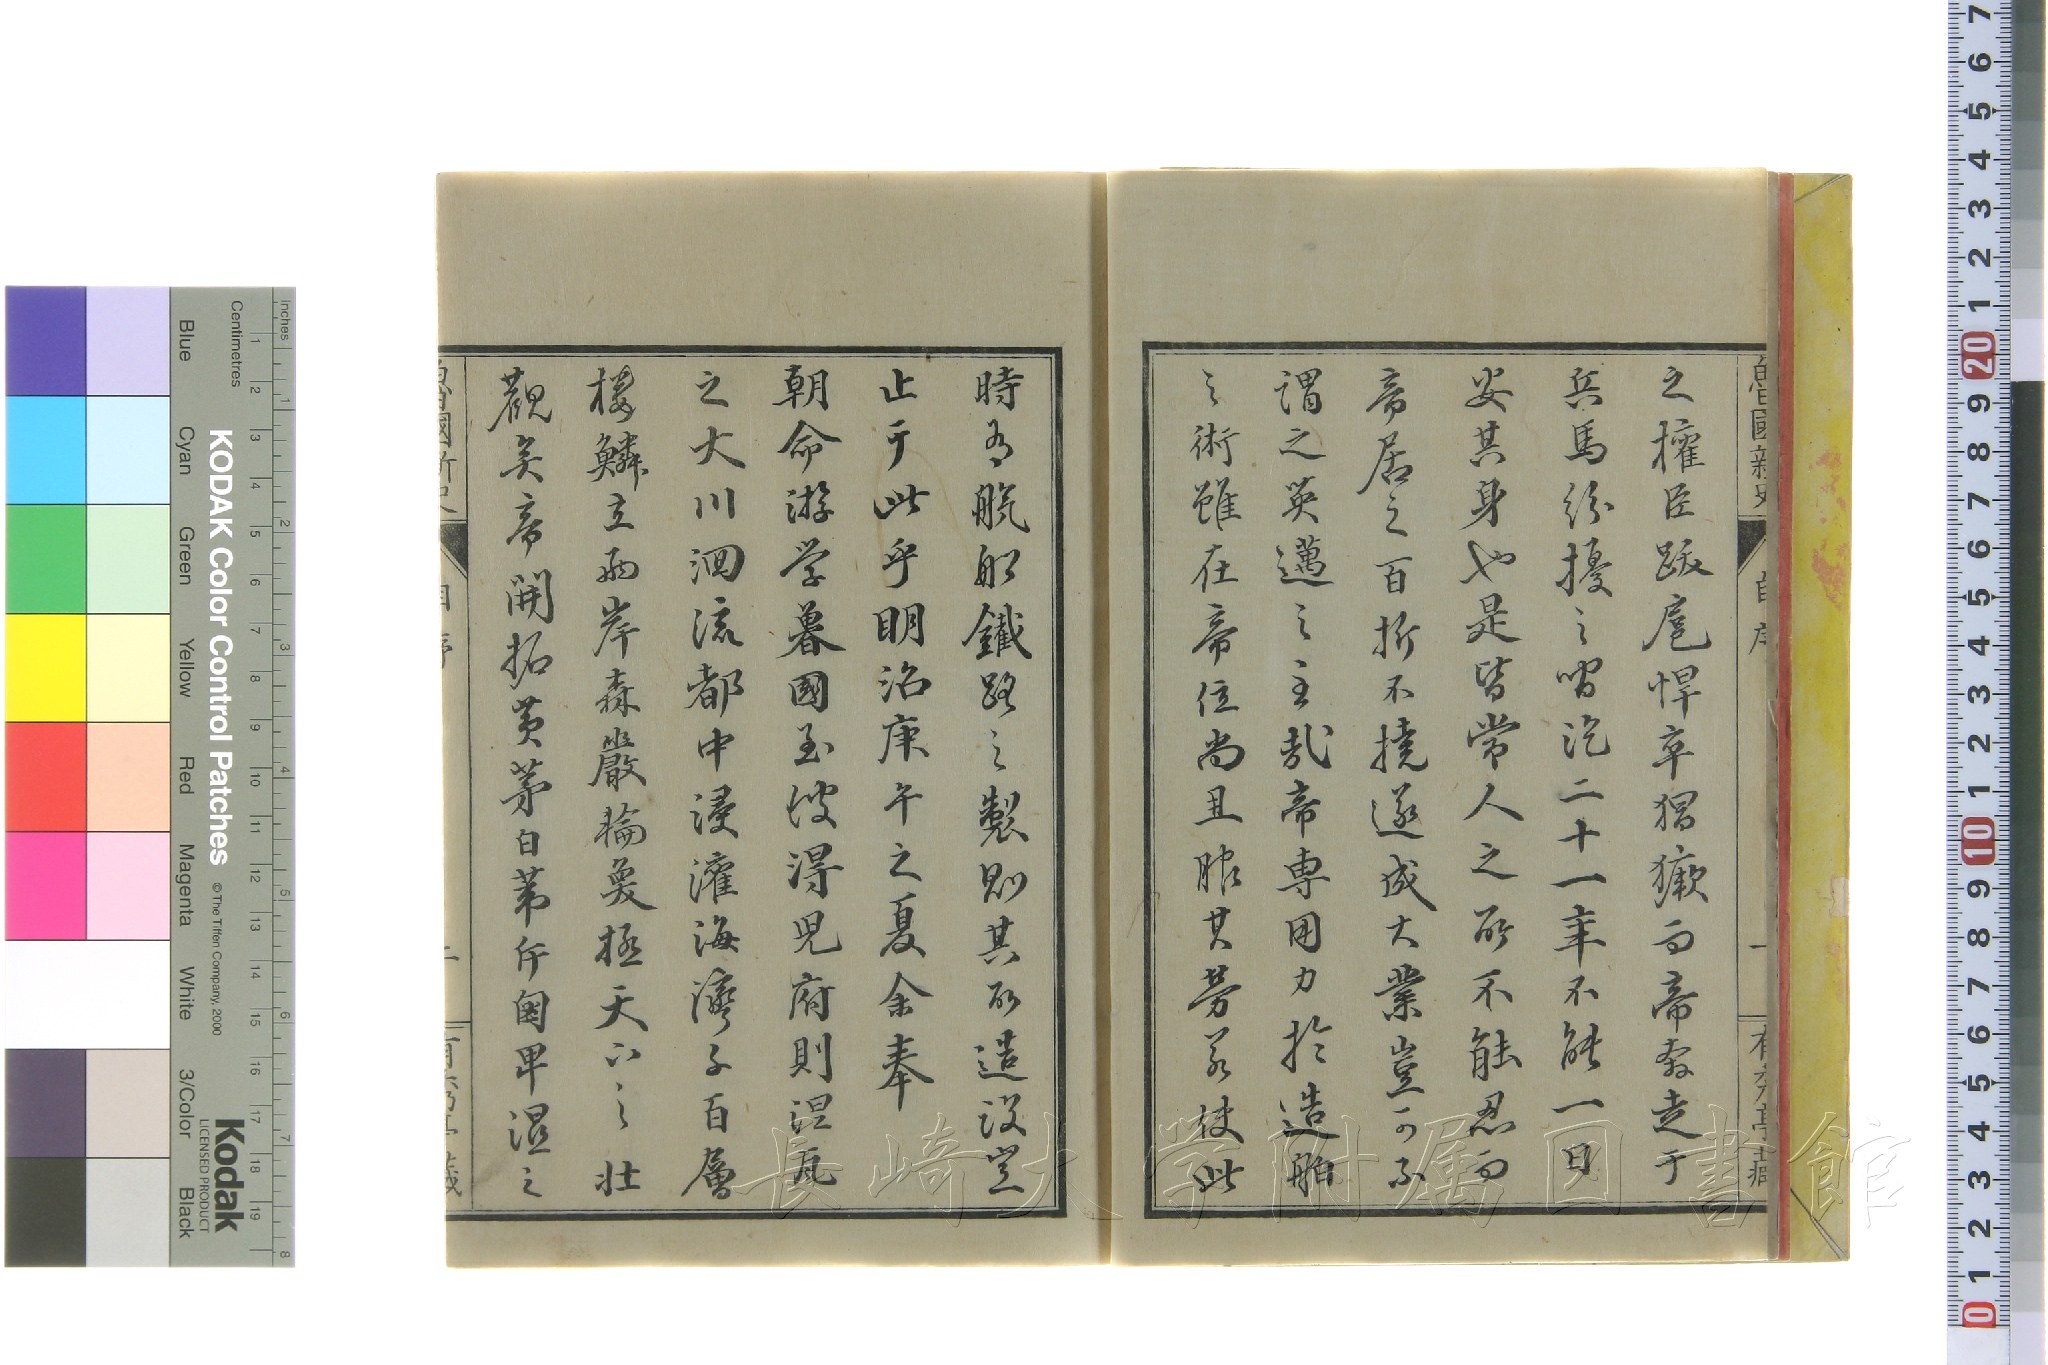 魯國新史
自序
一
之權臣跋扈悍卒猖獗而帝奔走于
兵馬紛擾之間汔二十一年不能一日
安其身也是皆常人之所不能忍而
帝居之百折不撓遂成大業豈可不
謂之英邁之主哉帝専用力於造舶
之術雖在帝位尚且服其勞若使此
時有船鐵路之製則其所造設豈
止于此乎明治庚午之夏余奉
朝命游学魯國至彼得児府則涅瓦
之大川洄流都中浸灌海湾千百層
樓鱗立兩岸森嚴輪奐極天下之壮
觀矣帝開拓黄茅白葦斥鹵卑湿之
長崎大学附属図書館
Blue
Cyan
Green
Yellow
Red
Magenta
White
3/Color
Black
KODAK Color Control Patches
© The Tiffen Company, 2000
Kodak
LICENSED PRODUCT
Centimetres
Inches